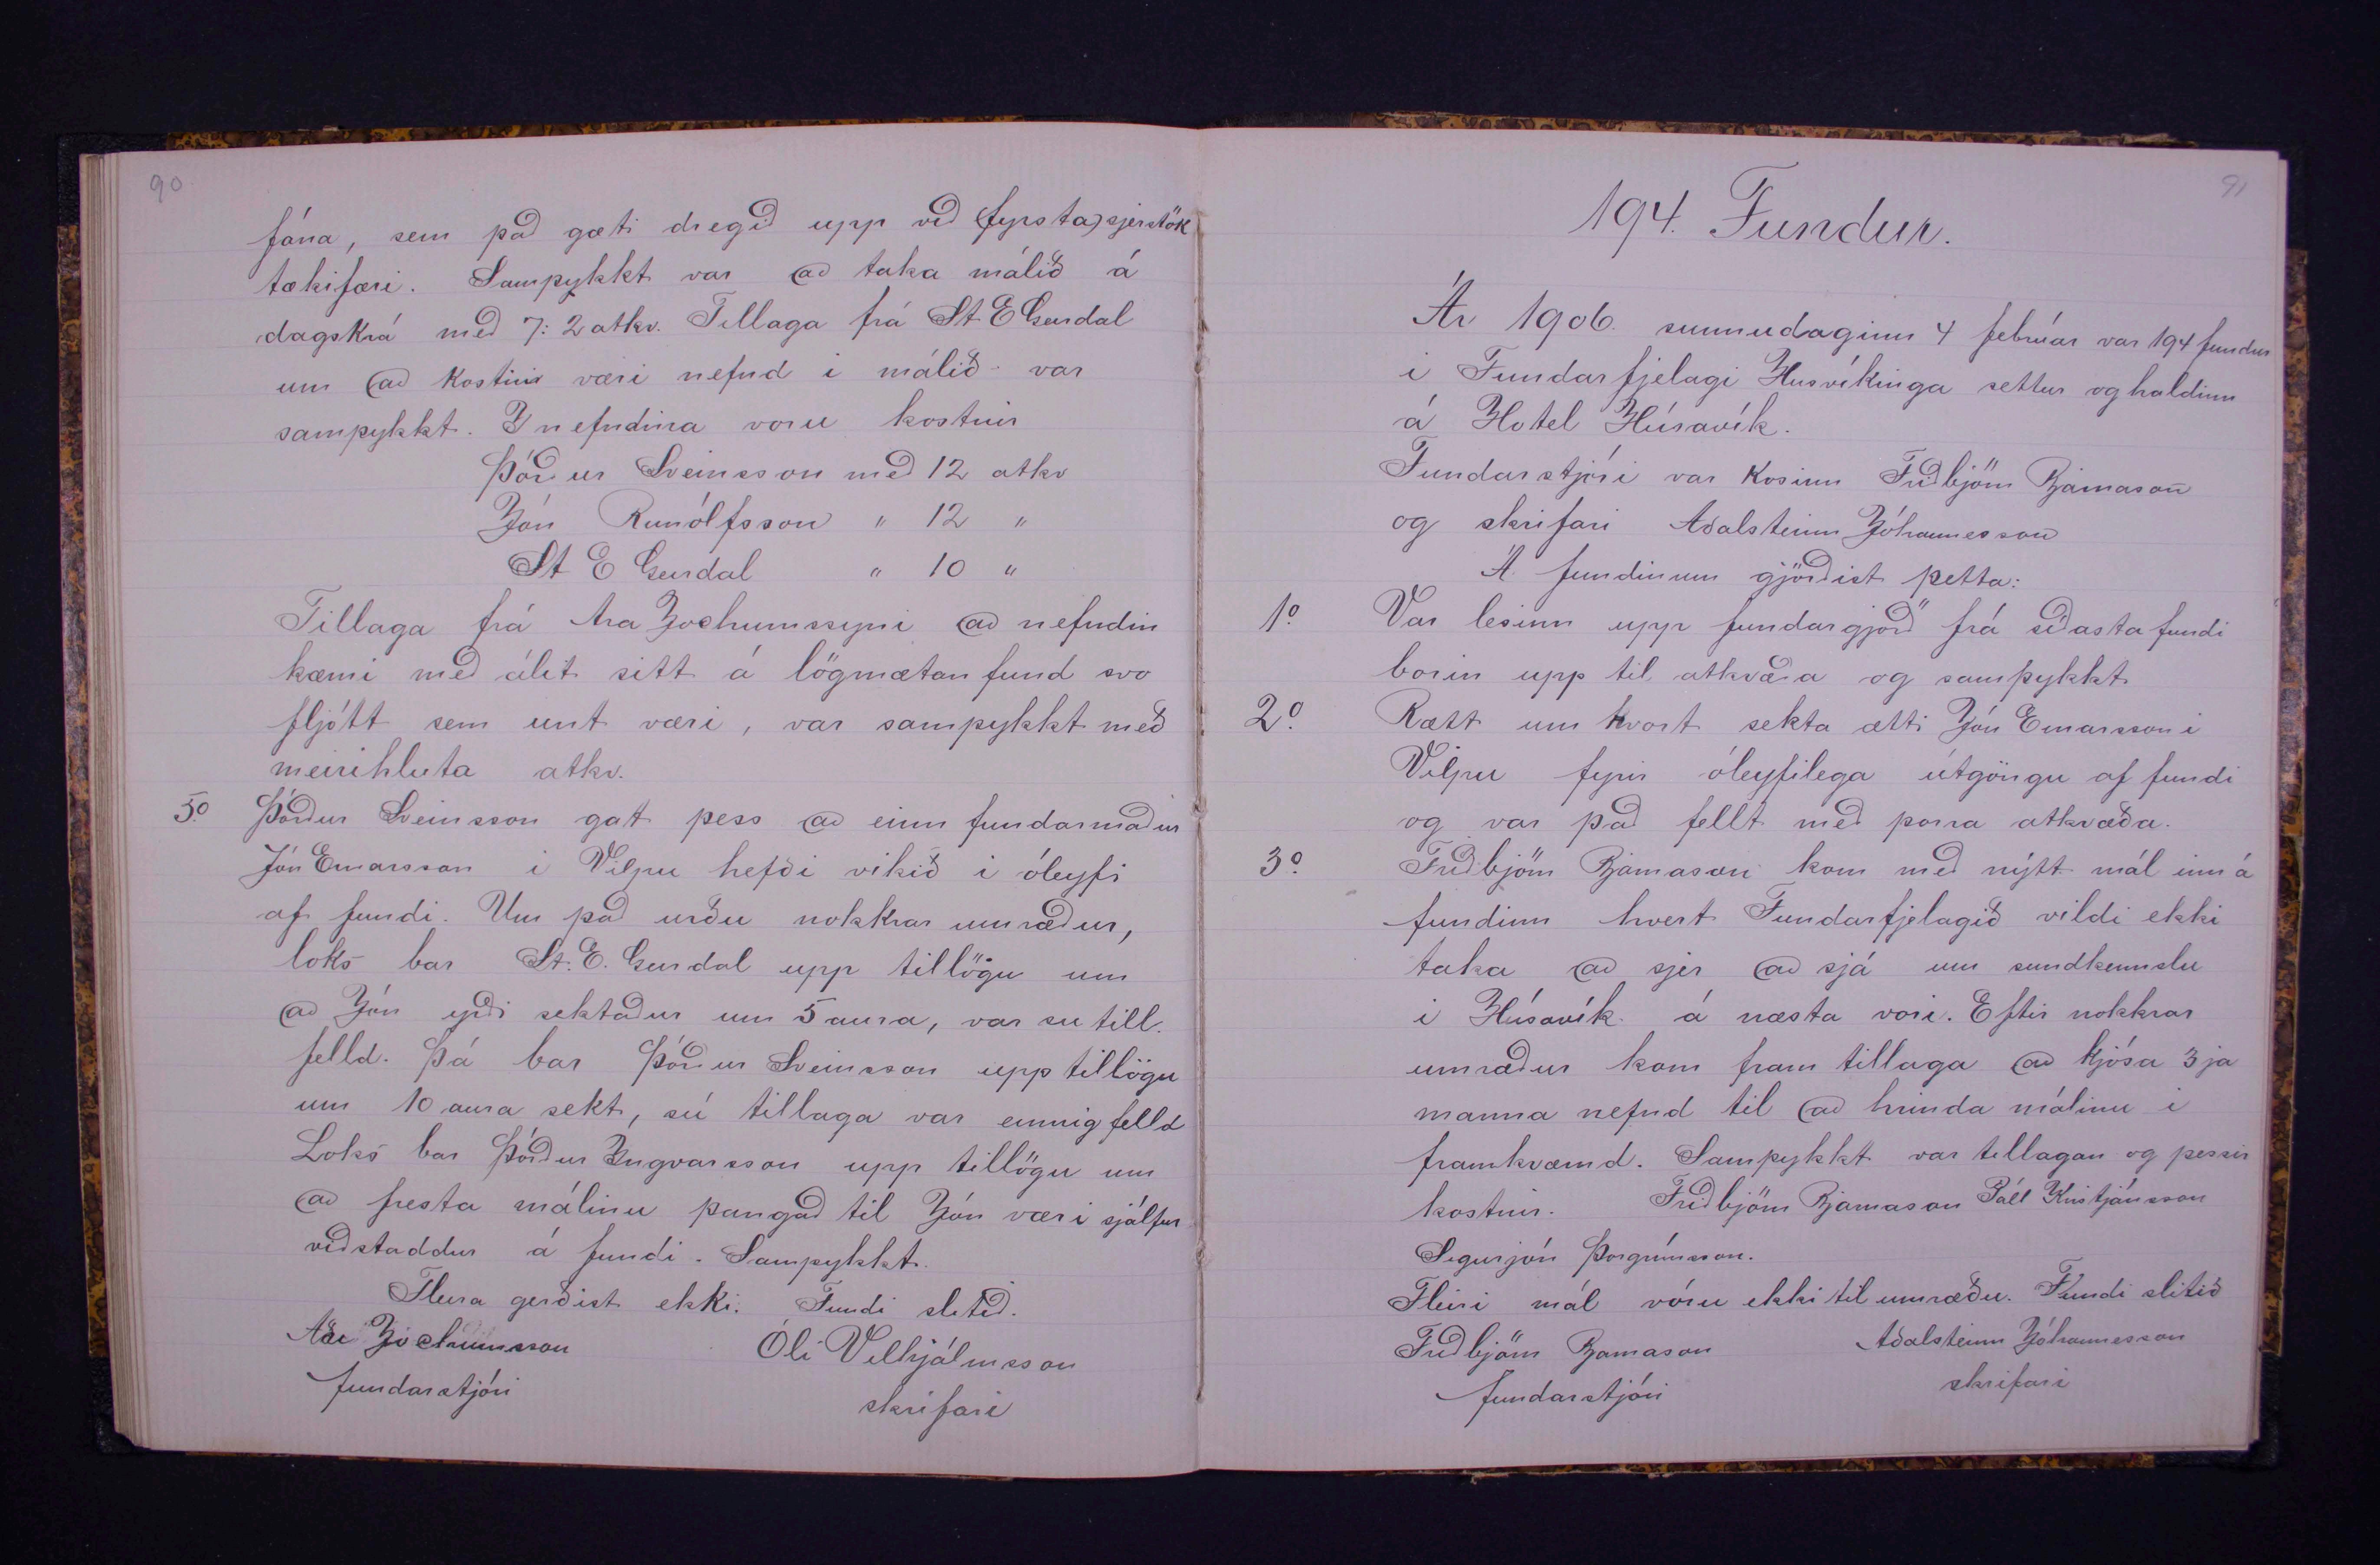 90
fána, sem það gæti dregið upp við (fyrsta) sjerstök
tækifæri. Samþykkt var að taka málið á
dagskrá með 7:2 atkv. Tillaga frá St E Geirdal
um að kostnir væri nefnd í málið - var
samþykkt. Í nefndina voru kostnir
Þórður Sveinsson með 12 atkv
Jón Runólfsson " 12 "
St E Geirdal " 10 "
Tillaga frá Ara Jochumssyni að nefndin
kæmi með álit sitt á lögmætan fund svo
fljótt sem unt væri, var samþykkt með
meirihluta atkv.
5.o Þórður Sveinsson gat þess að einn fundarmaður
Jón Einarsson í Vilpu hefði vikið í óleyfi
af fundi. Um það urðu nokkrar umræður,
loks bar St. E. Geirdal upp tillögu um
að Jón yrði sektaður um 5 aura, var sú till.
felld. Þá bar Þórður Sveinsson upp tillögu
um 10 aura sekt, sú tillaga var einnig felld
Loks bar Þórður Ingvarsson upp tillögu um
að fresta málinu þangað til Jón væri sjálfur
viðstaddur á fundi. Samþykkt.
Fleira gerðist ekki. Fundi slitið.
Ari Jochumsson
fundarstjóri
Óli Vilhjálmsson
skrifari
91
194. Fundur.
Ár 1906. sunnudaginn 4 febrúar var 194 fundur
í Fundarfjelagi Húsvíkinga settur og haldinn
á Hotel Húsavík.
Fundarstjóri var kosinn Friðbjörn Bjarnason
og skrifari Aðalsteinn Jóhannesson
Á fundinum gjörðist þetta:
1.o Var lesinn upp fundargjörð frá síðasta fundi
borin upp til atkvæða og samþykkt
2.o Rætt um hvort sekta ætti Jón Einarsson í
Vilpu fyrir óleyfilega útgöngu af fundi
og var það fellt með þorra atkvæða.
3.o Friðbjörn Bjarnason kom með nýtt mál inn á
fundinn hvert Fundarfjelagið vildi ekki
taka að sjer að sjá um sundkennslu
í Húsavík á næsta vori. Eftir nokkrar
umræður kom fram tillaga að kjósa 3ja
manna nefnd til að hrinda málinu í
framkvæmd. Samþykkt var tillagan og þessir
kostnir. Friðbjörn Bjarnason Páll Kristjánsson
Sigurjón Þorgrímsson.
Fleiri mál vóru ekki til umræðu. Fundi slitið
Friðbjörn Bjarnason
fundarstjóri
Aðalsteinn Jóhannesson
skrifari